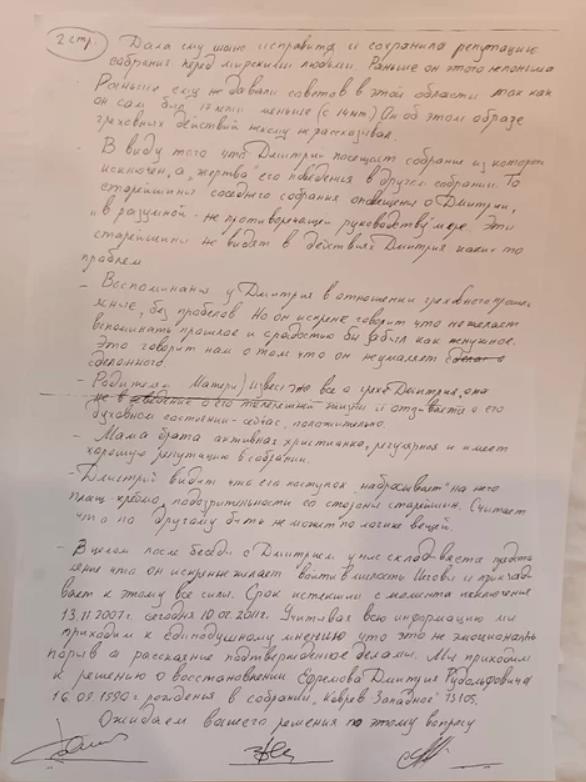 2 стр.
Дала ему шанс исправится и сохранила репутацию
собрания перед мирскими людьми. Раньше он этого непонима
Раньше ему не давали советов в этой области так как
он сам был 17 лет меньше (с 14 лет) Он об этом образе
греховных действий никому не рассказывал.
- В виду того что Дмитрий посещает собрание из которого
исключен, а "жертва" его поведения в другом собрании. То
старейшины соседнего собрания оповещены о Дмитрии,
"в разумной - не противоречащей руководству" мере. Эти
старейшины не видят в действиях Дмитрия каких то
проблем
- Воспоминания у Дмитрия в отношении греховного прошл
ясные, без пробелов. Но он искренне говорит что не желает
вспоминать прошлое и с радостью бы забыл как ненужное.
Это говорит нам о том что он не умаляет
сделанного.
- Родителям (Матери) известно все о грехе Дмитрия, она
не в о его теперешней жизни и отзывается о его
духовном состоянии - сейчас, положительно.
- Мама брата активная христианка, регулярная и имеет
хорошую репутацию в собрании.
- Дмитрий видит что его поступок "набрасывает" на него
плащ - клеймо, подозрительности со стороны старейшин. Считает
что по другому быть не может по логике вещей.
- В целом после беседы с Дмитрием у нас складывается предста
вление что он искренне желает "войти в милость Иеговы и прикла
вает к этому все силы. Срок истекший с момента исключения
13.11.2007г. сегодня 10.02.2011г. Учитывая всю информацию мы
приходим к единодушному мнению что это не эмоциональн
порыв а раскаяние подтвержденное делами. Мы приходим
к решению о восстановлении Ефремова Дмитрия Рудольфовича
16.09.1990г рожденья в собрании "Ковров Западное" 73105.
Ожидаем вашего решения по этому вопросу